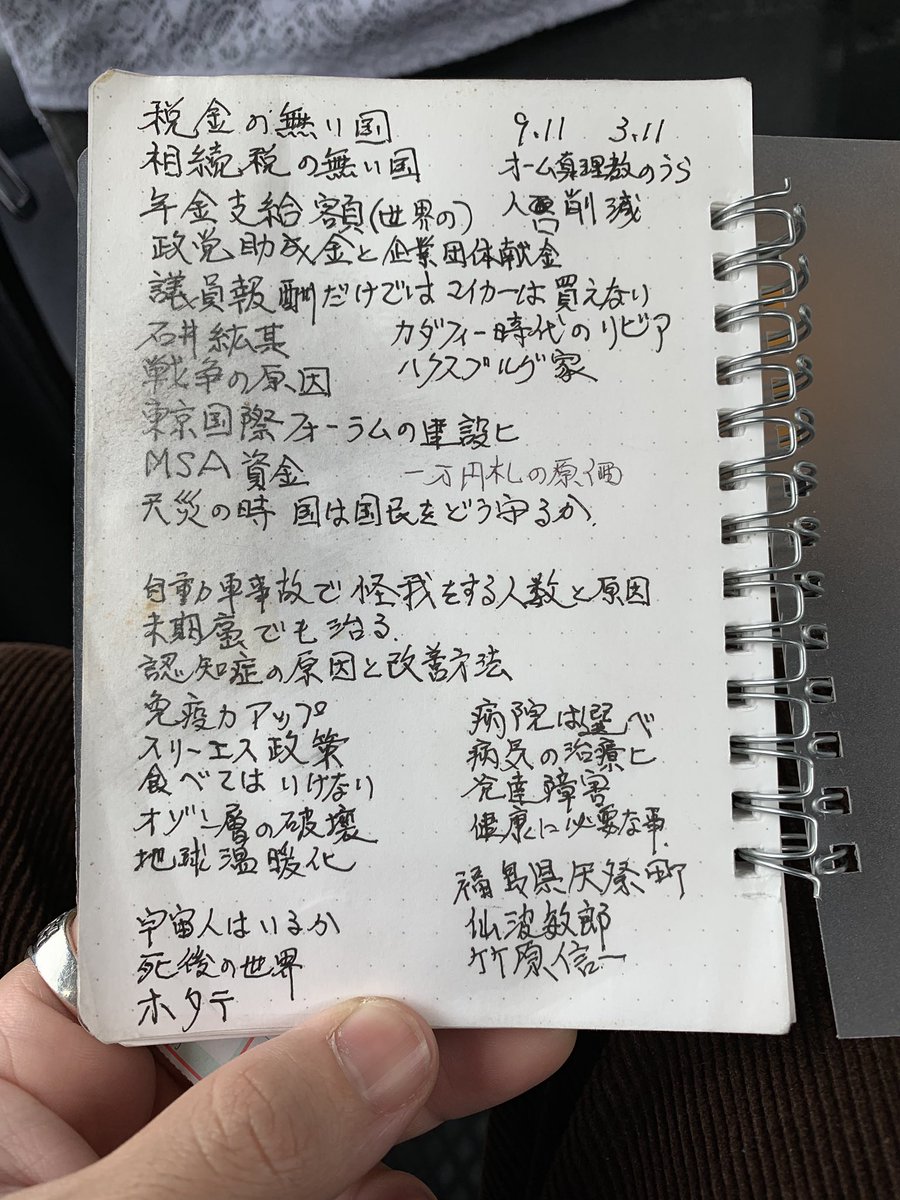 税金の無い国
9.11 3.11
相続税の無い国
オーム真理教のうら
年金支給額(世界の)
人口削減
政党助成金と企業団体献金
議員報酬だけではマイカーは買えない
石井紘基
カダフィー時代のリビア
戦争の原因
ハクスブルグ家
東京国際フォーラムの建設ヒ
MSA資金
一万円札の原価
天災の時 国は国民をどう守るか.
自動車事故で怪我をする人数と原因
末期癌でも治る.
認知症の原因と改善方法
免疫力アップ
スリーエス政策
食べてはいけない
オゾン層の破壊
地球温暖化
病院は選べ
病気の治療ヒ
発達障害
健康に必要な事.
福島県灰祭町
仙波敏郎
竹原信一
宇宙人はいるか
死後の世界
ホタテ